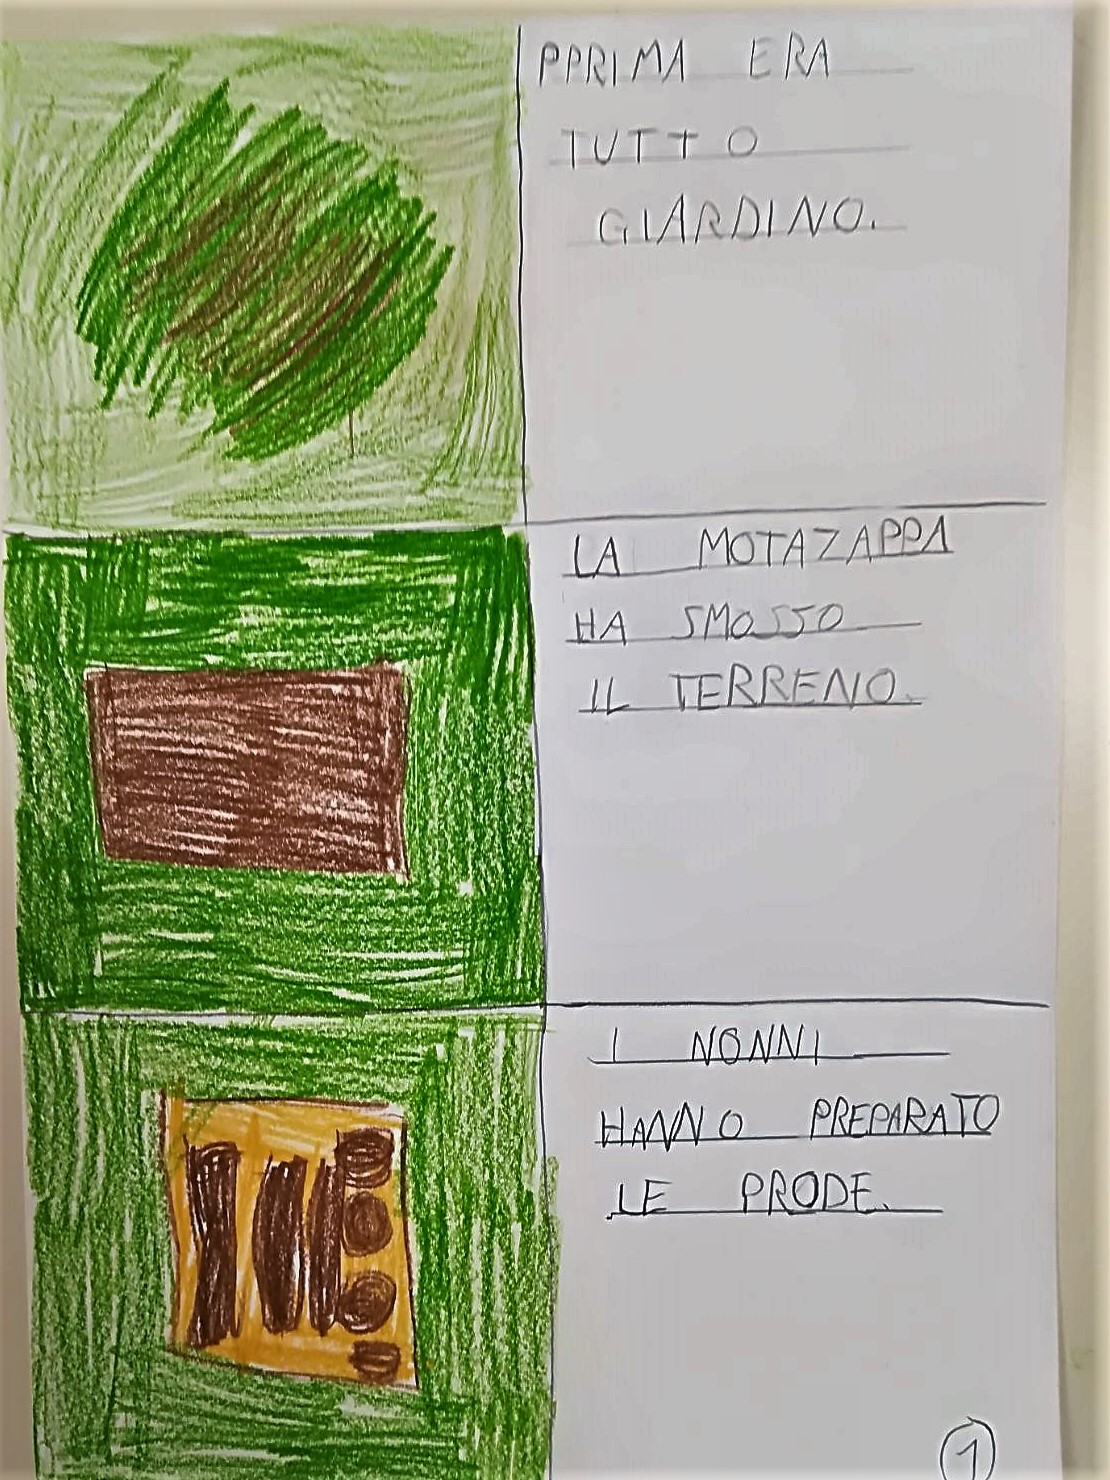 PPRIMA ERA
TUTTO
GIARDINO.
LA MOTAZAPPA
HA SMOSSO
IL TERRENO.
I NONNI
HANNO PREPARATO
LE PRODE.
1